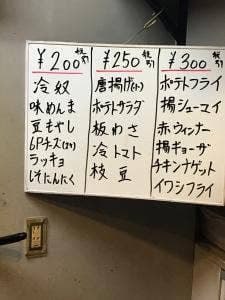 ¥200 税別
冷奴
味めんま
豆もやし
6Pチーズ
ラッキョ
しそにんにく
¥250 税別
唐揚げ
ポテトサラダ
板わさ
冷トマト
枝豆
¥300 税別
ポテトフライ
揚シューマイ
赤ウィンナー
揚ギョーザ
チキンナゲット
イワシフライ